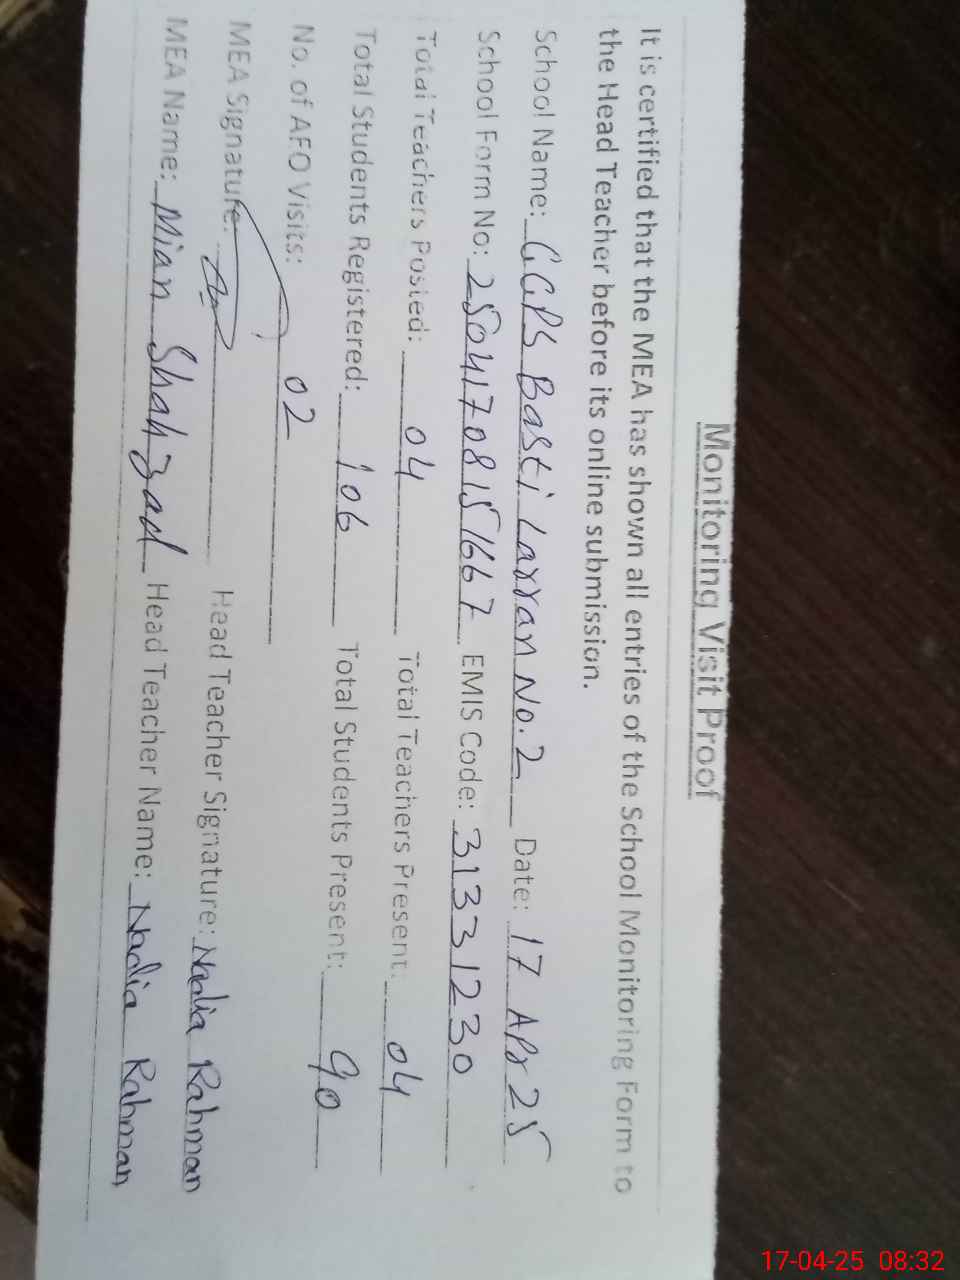 Monitoring Visit Proof
It is certified that the MEA has shown all entries of the School Monitoring Form to
the Head Teacher before its online submission.
School Name: GGPS Basti Larran No. 2 Date: 17 Apr 25
School Form No: 25041708151667 EMIS Code: 31331230
Total Teachers Posted: 04 Total Teachers Present: 04
Total Students Registered: 106 Total Students Present: 90
No. of AFO Visits: 02
MEA Signature: Head Teacher Signature: Nadia Rahman
MEA Name: Mian Shahzad Head Teacher Name: Nadia Rahman
17-04-25 08:32